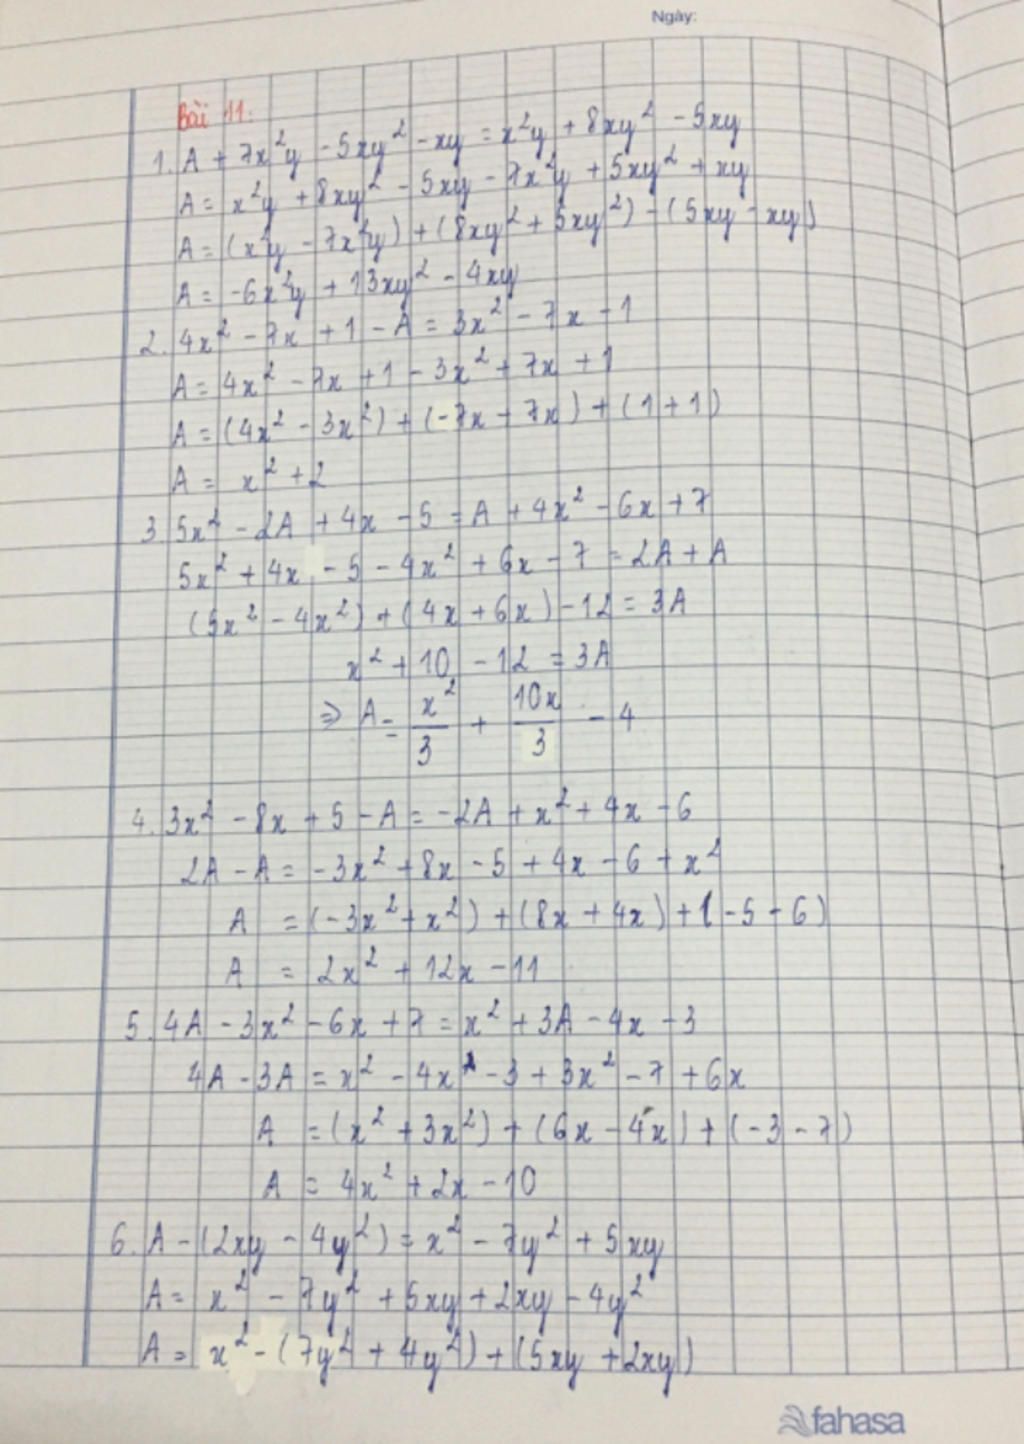 Ngày:
Bài 11:
1. A + 7x²y - 5xy² - xy = x²y + 8xy² - 5xy
A = x²y + 8xy² - 5xy - 7x²y + 5xy² + xy
A = (x²y - 7x²y) + (8xy² + 5xy²) - (5xy - xy)
A = -6x²y + 13xy² - 4xy
2. 4x² - 7x + 1 - A = 3x² - 7x - 1
A = 4x² - 7x + 1 - 3x² + 7x + 1
A = (4x² - 3x²) + (-7x + 7x) + (1 + 1)
A = x² + 2
3. 5x² - 2A + 4x - 5 = A + 4x² - 6x + 7
5x² + 4x - 5 - 4x² + 6x - 7 = 2A + A
(5x² - 4x²) + (4x + 6x) - 12 = 3A
x² + 10 - 12 = 3A
⇒ A = x²/3 + 10x/3 - 4
4. 3x² - 8x + 5 - A = -2A + x² + 4x - 6
2A - A = -3x² + 8x - 5 + 4x - 6 + x²
A = (-3x² + x²) + (8x + 4x) + (-5 - 6)
A = 2x² + 12x - 11
5. 4A - 3x² - 6x + 7 = x² + 3A - 4x - 3
4A - 3A = x² - 4x - 3 + 3x² - 7 + 6x
A = (x² + 3x²) + (6x - 4x) + (-3 - 7)
A = 4x² + 2x - 10
6. A - (2xy - 4y²) = x² - 7y² + 5xy
A = x² - 7y² + 5xy + 2xy - 4y²
A = x² - (7y² + 4y²) + (5xy + 2xy)
fahasa